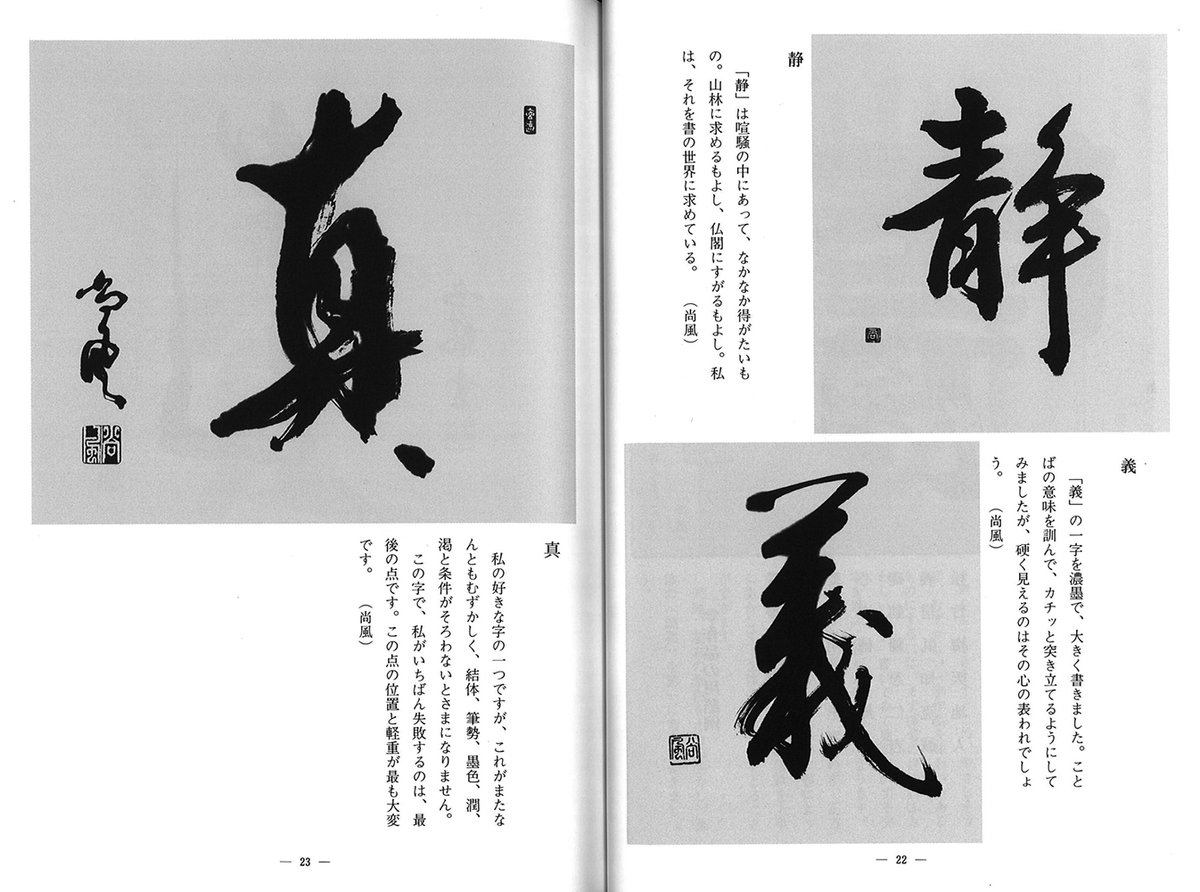 静
静
「静」は喧騒の中にあって、なかなか得がたいも
の。山林に求めるもよし、仏閣にすがるもよし。私
は、それを書の世界に求めている。　（尚風）
義
「義」の一字を濃墨で、大きく書きました。こと
ばの意味を訓んで、カチッと突き立てるようにして
みましたが、硬く見えるのはその心の表われでしょ
う。　（尚風）
義
尚風
— 22 —
真
尚風
尚風
真
私の好きな字の一つですが、これがまたな
んともむずかしく、結体、筆勢、墨色、潤、
渇と条件がそろわないとさまになりません。
この字で、私がいちばん失敗するのは、最
後の点です。この点の位置と軽重が最も大変
です。　（尚風）
— 23 —